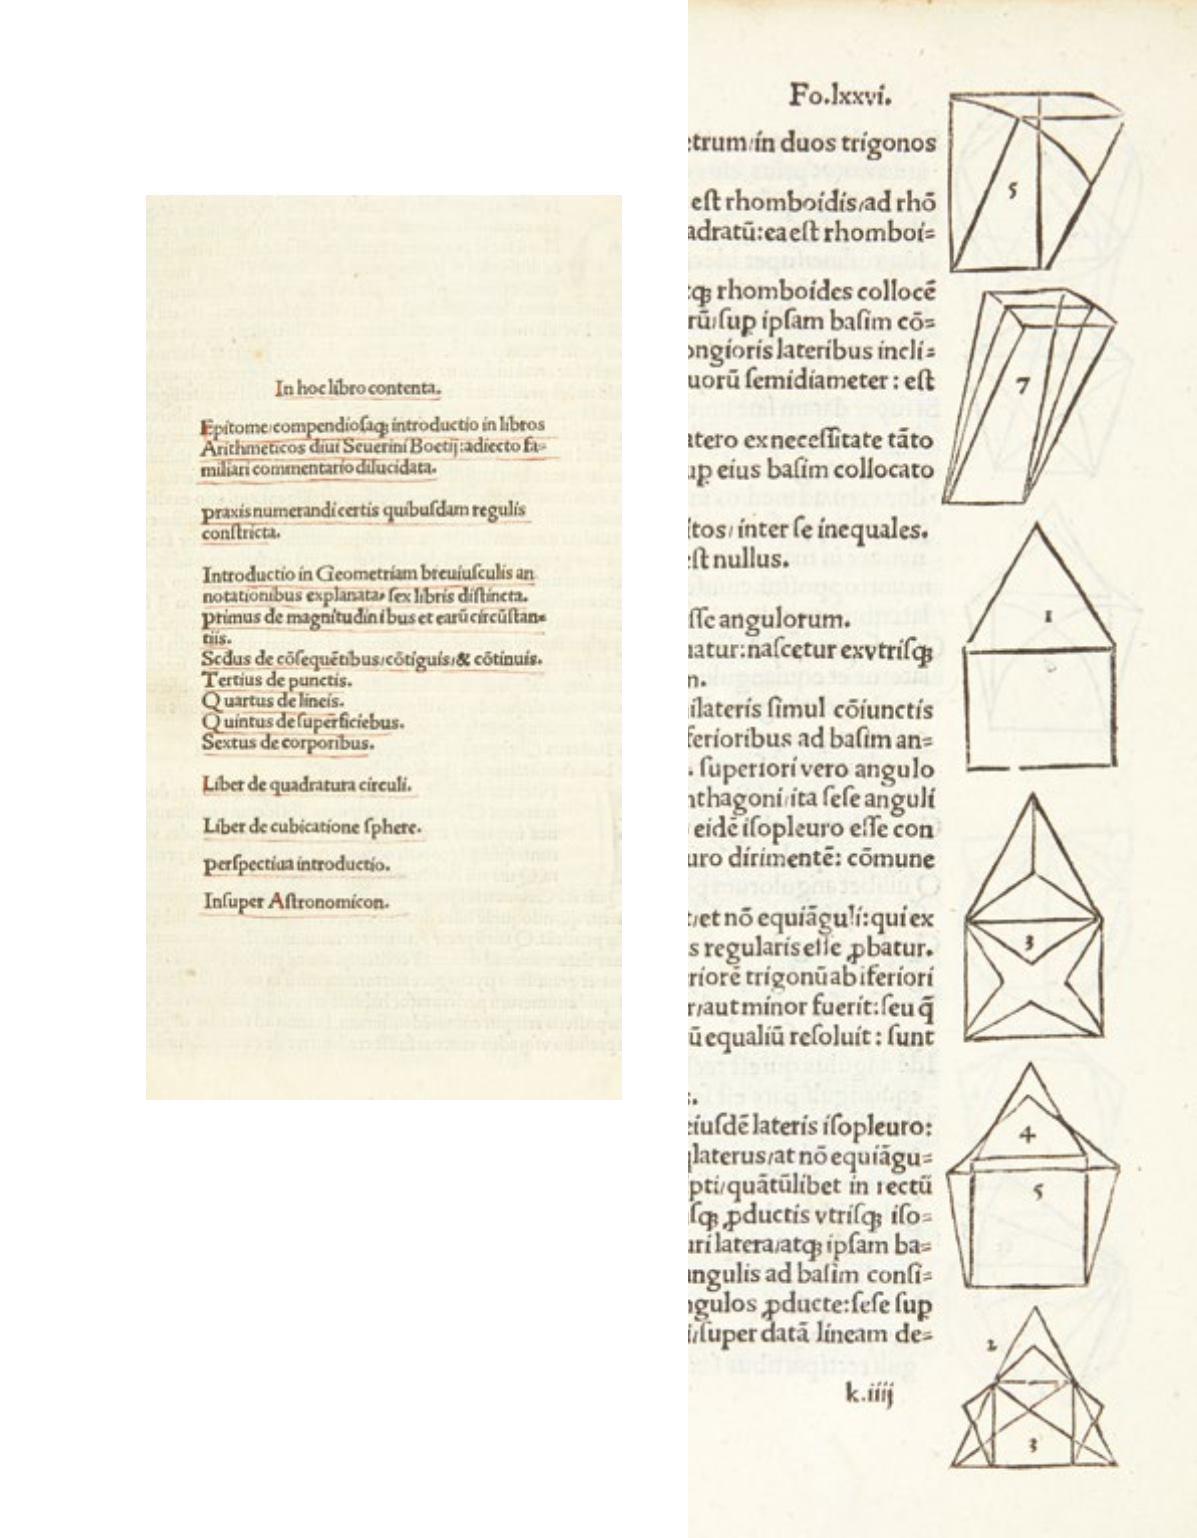 In hoc libro contenta.
Epitome, compendiosaqꝫ introductio in libros
Arithmeticos diui Seuerini Boetij: adiecto fa-
miliari commentario dilucidata.
praxis numerandi certis quibusdam regulis
constricta.
Introductio in Geometriam breuiusculis an
notationibus explanata, sex libris distincta.
primus de magnitudinibus et earū circūstan-
tiis.
Scdus de cōsequētibus, cōtiguis, & cōtinuis.
Tertius de punctis.
Quartus de lineis.
Quintus de superficiebus.
Sextus de corporibus.
Liber de quadratura circuli.
Liber de cubicatione sphere.
perspectiua introductio.
Insuper Astronomicon.
Fo.lxxvi.
etrum/in duos trigonos
est rhomboidis/ad rhō
adratū: ea est rhomboi=
qꝫ rhomboides collocē
rū/sup ipsam basim cō=
ongioris lateribus incli=
uorū semidiameter: est
atero ex necessitate tāto
up eius basim collocato
itos/ inter se inequales.
est nullus.
sse angulorum.
uatur: nascetur ex vtrisqꝫ
n.
ilateris simul cōiunctis
ferioribus ad basim an=
. superiori vero angulo
nthagoni/ita sese anguli
eidē isopleuro esse con
uro dirimentē: cōmune
t/et nō equiāguli: qui ex
s regularis esse ꝓbatur.
riorē trigonū ab iferiori
r/aut minor fuerit: seu q̄
ū equaliū resoluit: sunt
s.
eiusdē lateris isopleuro:
laterus/at nō equiāgu=
pti/quātūlibet in rectū
sqꝫ ꝓductis vtrisqꝫ iso=
uri latera/atqꝫ ipsam ba=
angulis ad basim consi=
ngulos ꝓducte: sese sup
i/super datā lineam de=
k.iiij
5
7
1
3
4
5
2
3